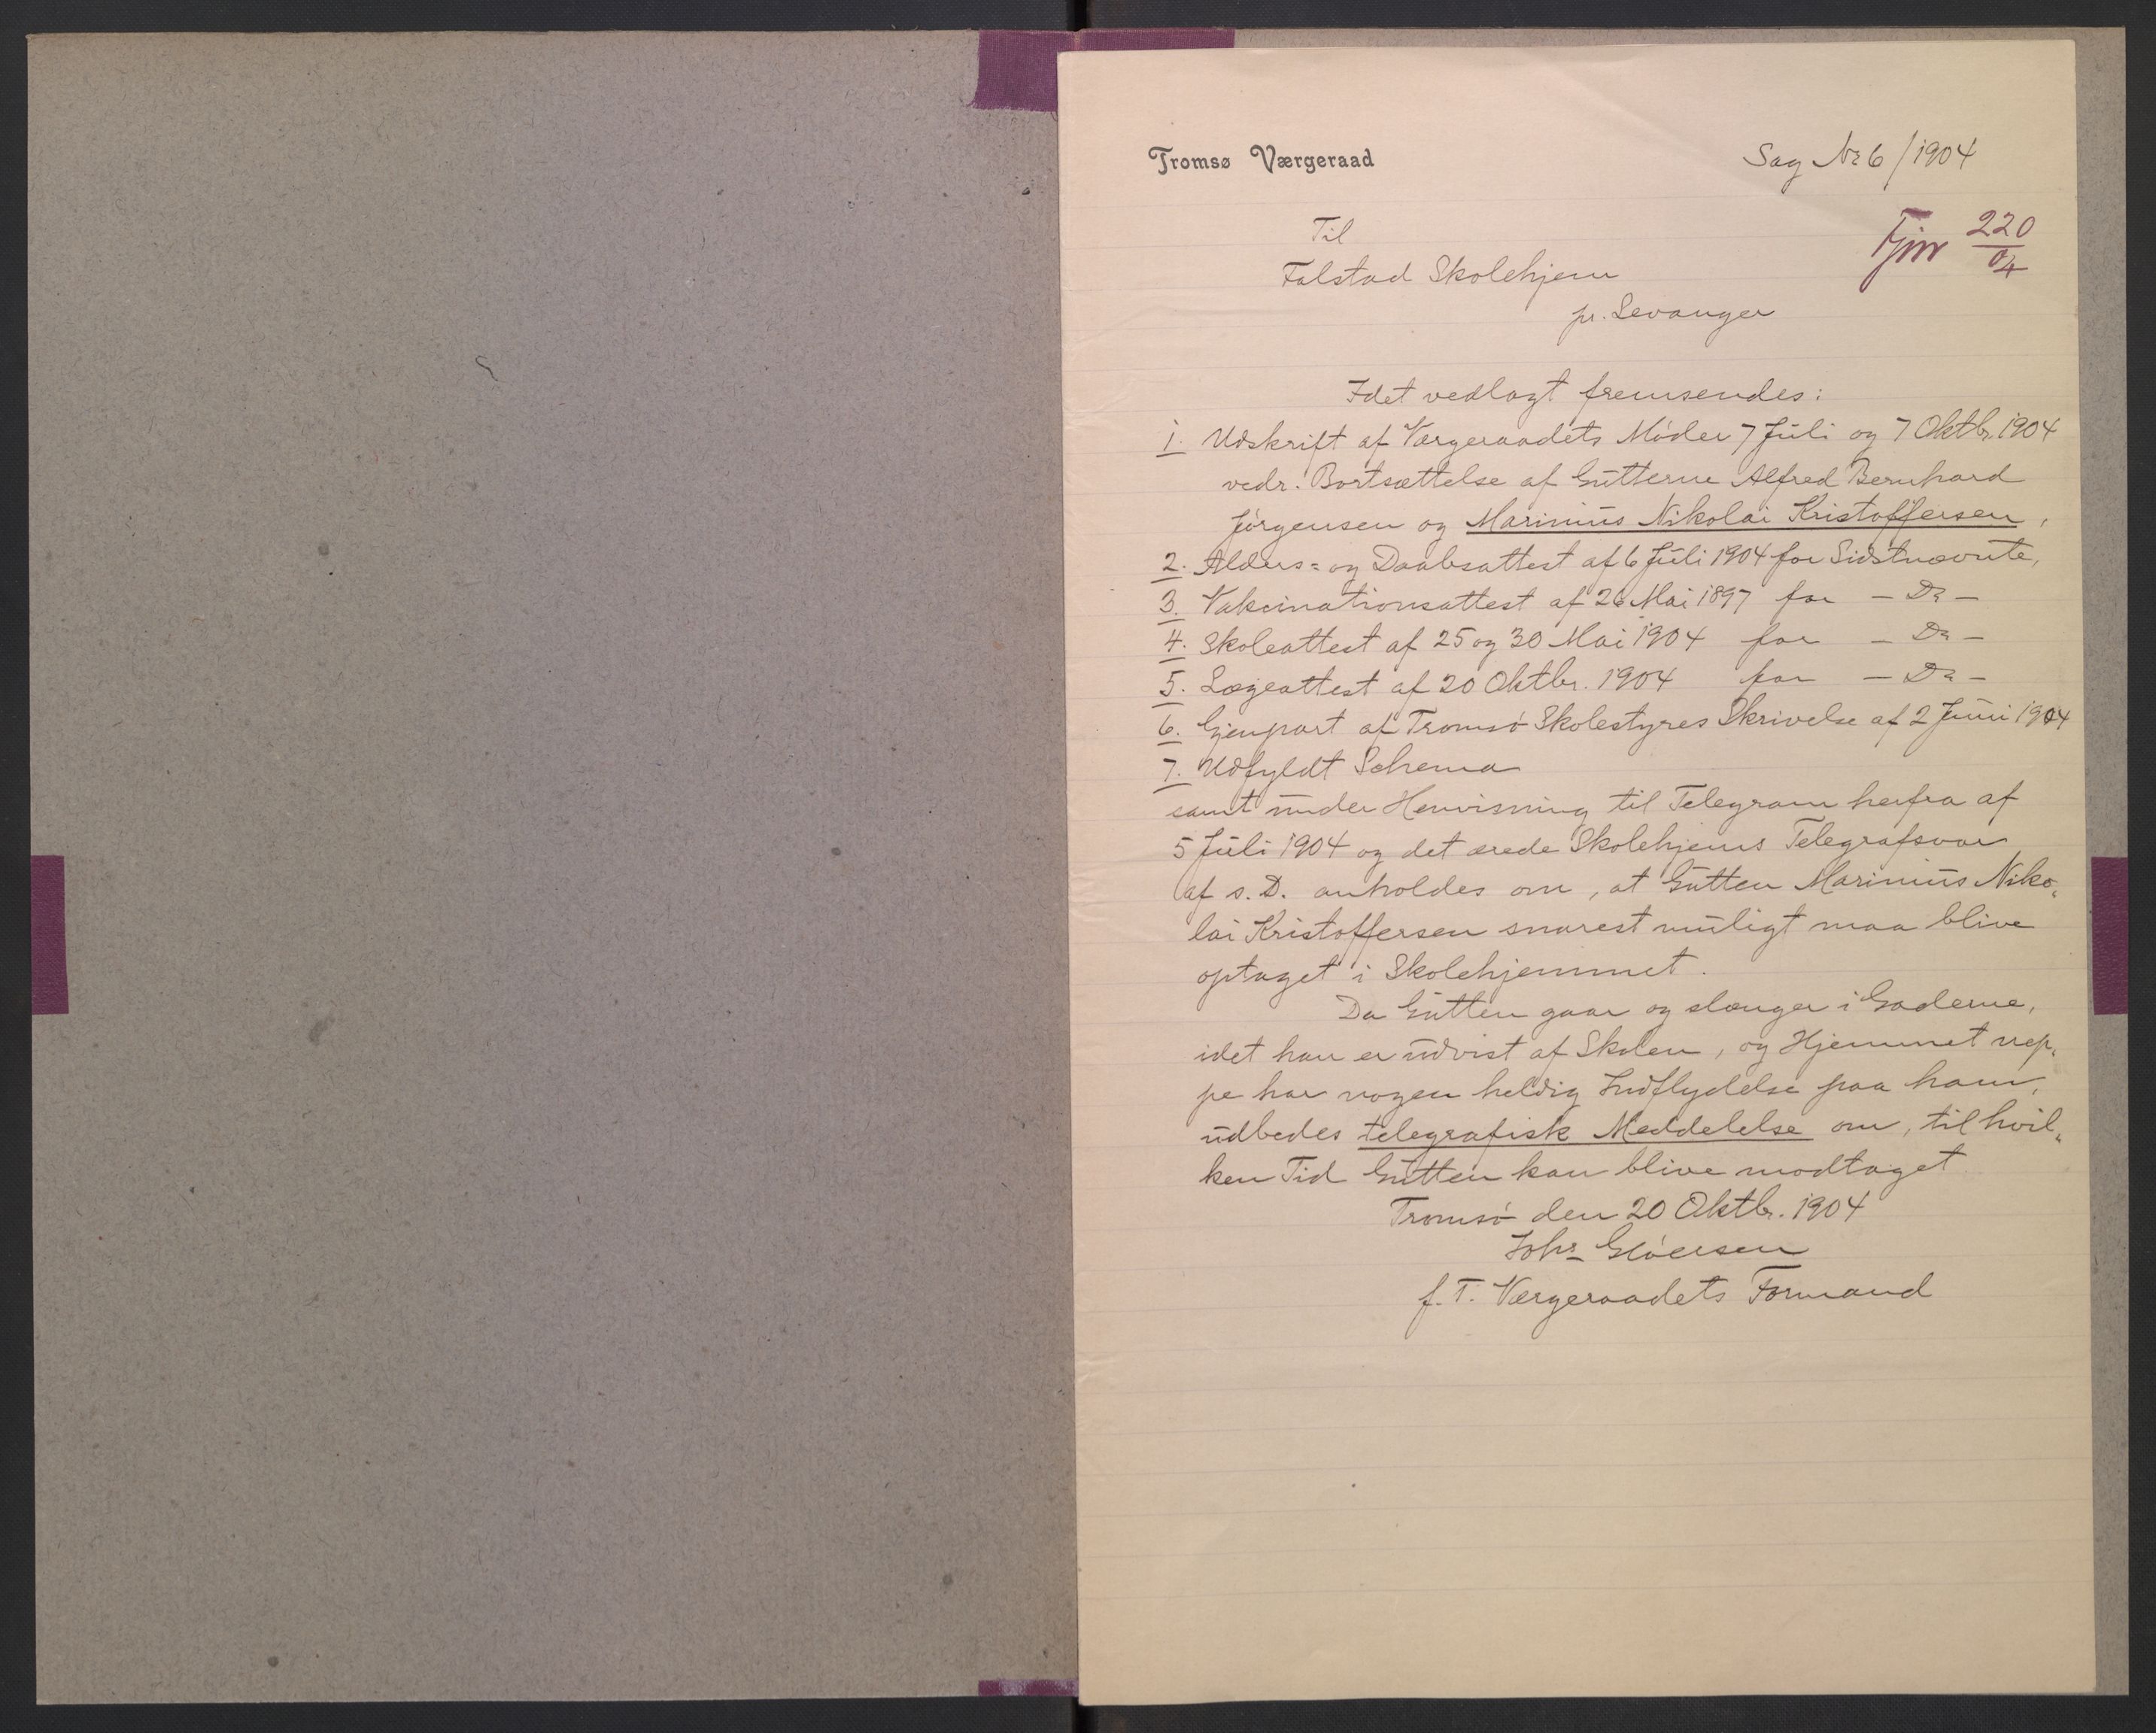 Tromsø Værgeraad
Sag No 6/1904
Fjnr 220/04
Til
Falstad Skolehjem
pr. Levanger
Idet vedlagt fremsendes:
1. Udskrift af Værgeraadets Møder 7 Juli og 7 Oktbr. 1904
vedr. Bortsættelse af Gutterne Alfred Bernhard
Jørgensen og Marinius Nikolai Kristoffersen,
2. Alders- og Daabsattest af 6 Juli 1904 for Sidstnævnte,
3. Vakcinationsattest af 26 Mai 1897 for - Do -
4. Skoleattest af 25 og 30 Mai 1904 for - Do -
5. Lægeattest af 20 Oktbr. 1904 for - Do -
6. Gjenpart af Tromsø Skolestyres Skrivelse af 2 Juni 1904
7. Udfyldt Schema
samt under Henvisning til Telegram herfra af
5 Juli 1904 og det ærede Skolehjems Telegrafsvar
af s. D. anholdes om, at Gutten Marinius Niko-
lai Kristoffersen snarest muligt maa blive
optaget i Skolehjemmet.
Da Gutten gaar og slænger i Gaderne,
idet han er udvist af Skolen, og Hjemmet nep-
pe har nogen heldig Indflydelse paa ham,
udbedes telegrafisk Meddelelse om, til hvil-
ken Tid Gutten kan blive modtaget
Tromsø den 20 Oktbr. 1904
Johs Gløersen
f. T. Værgeraadets Formand